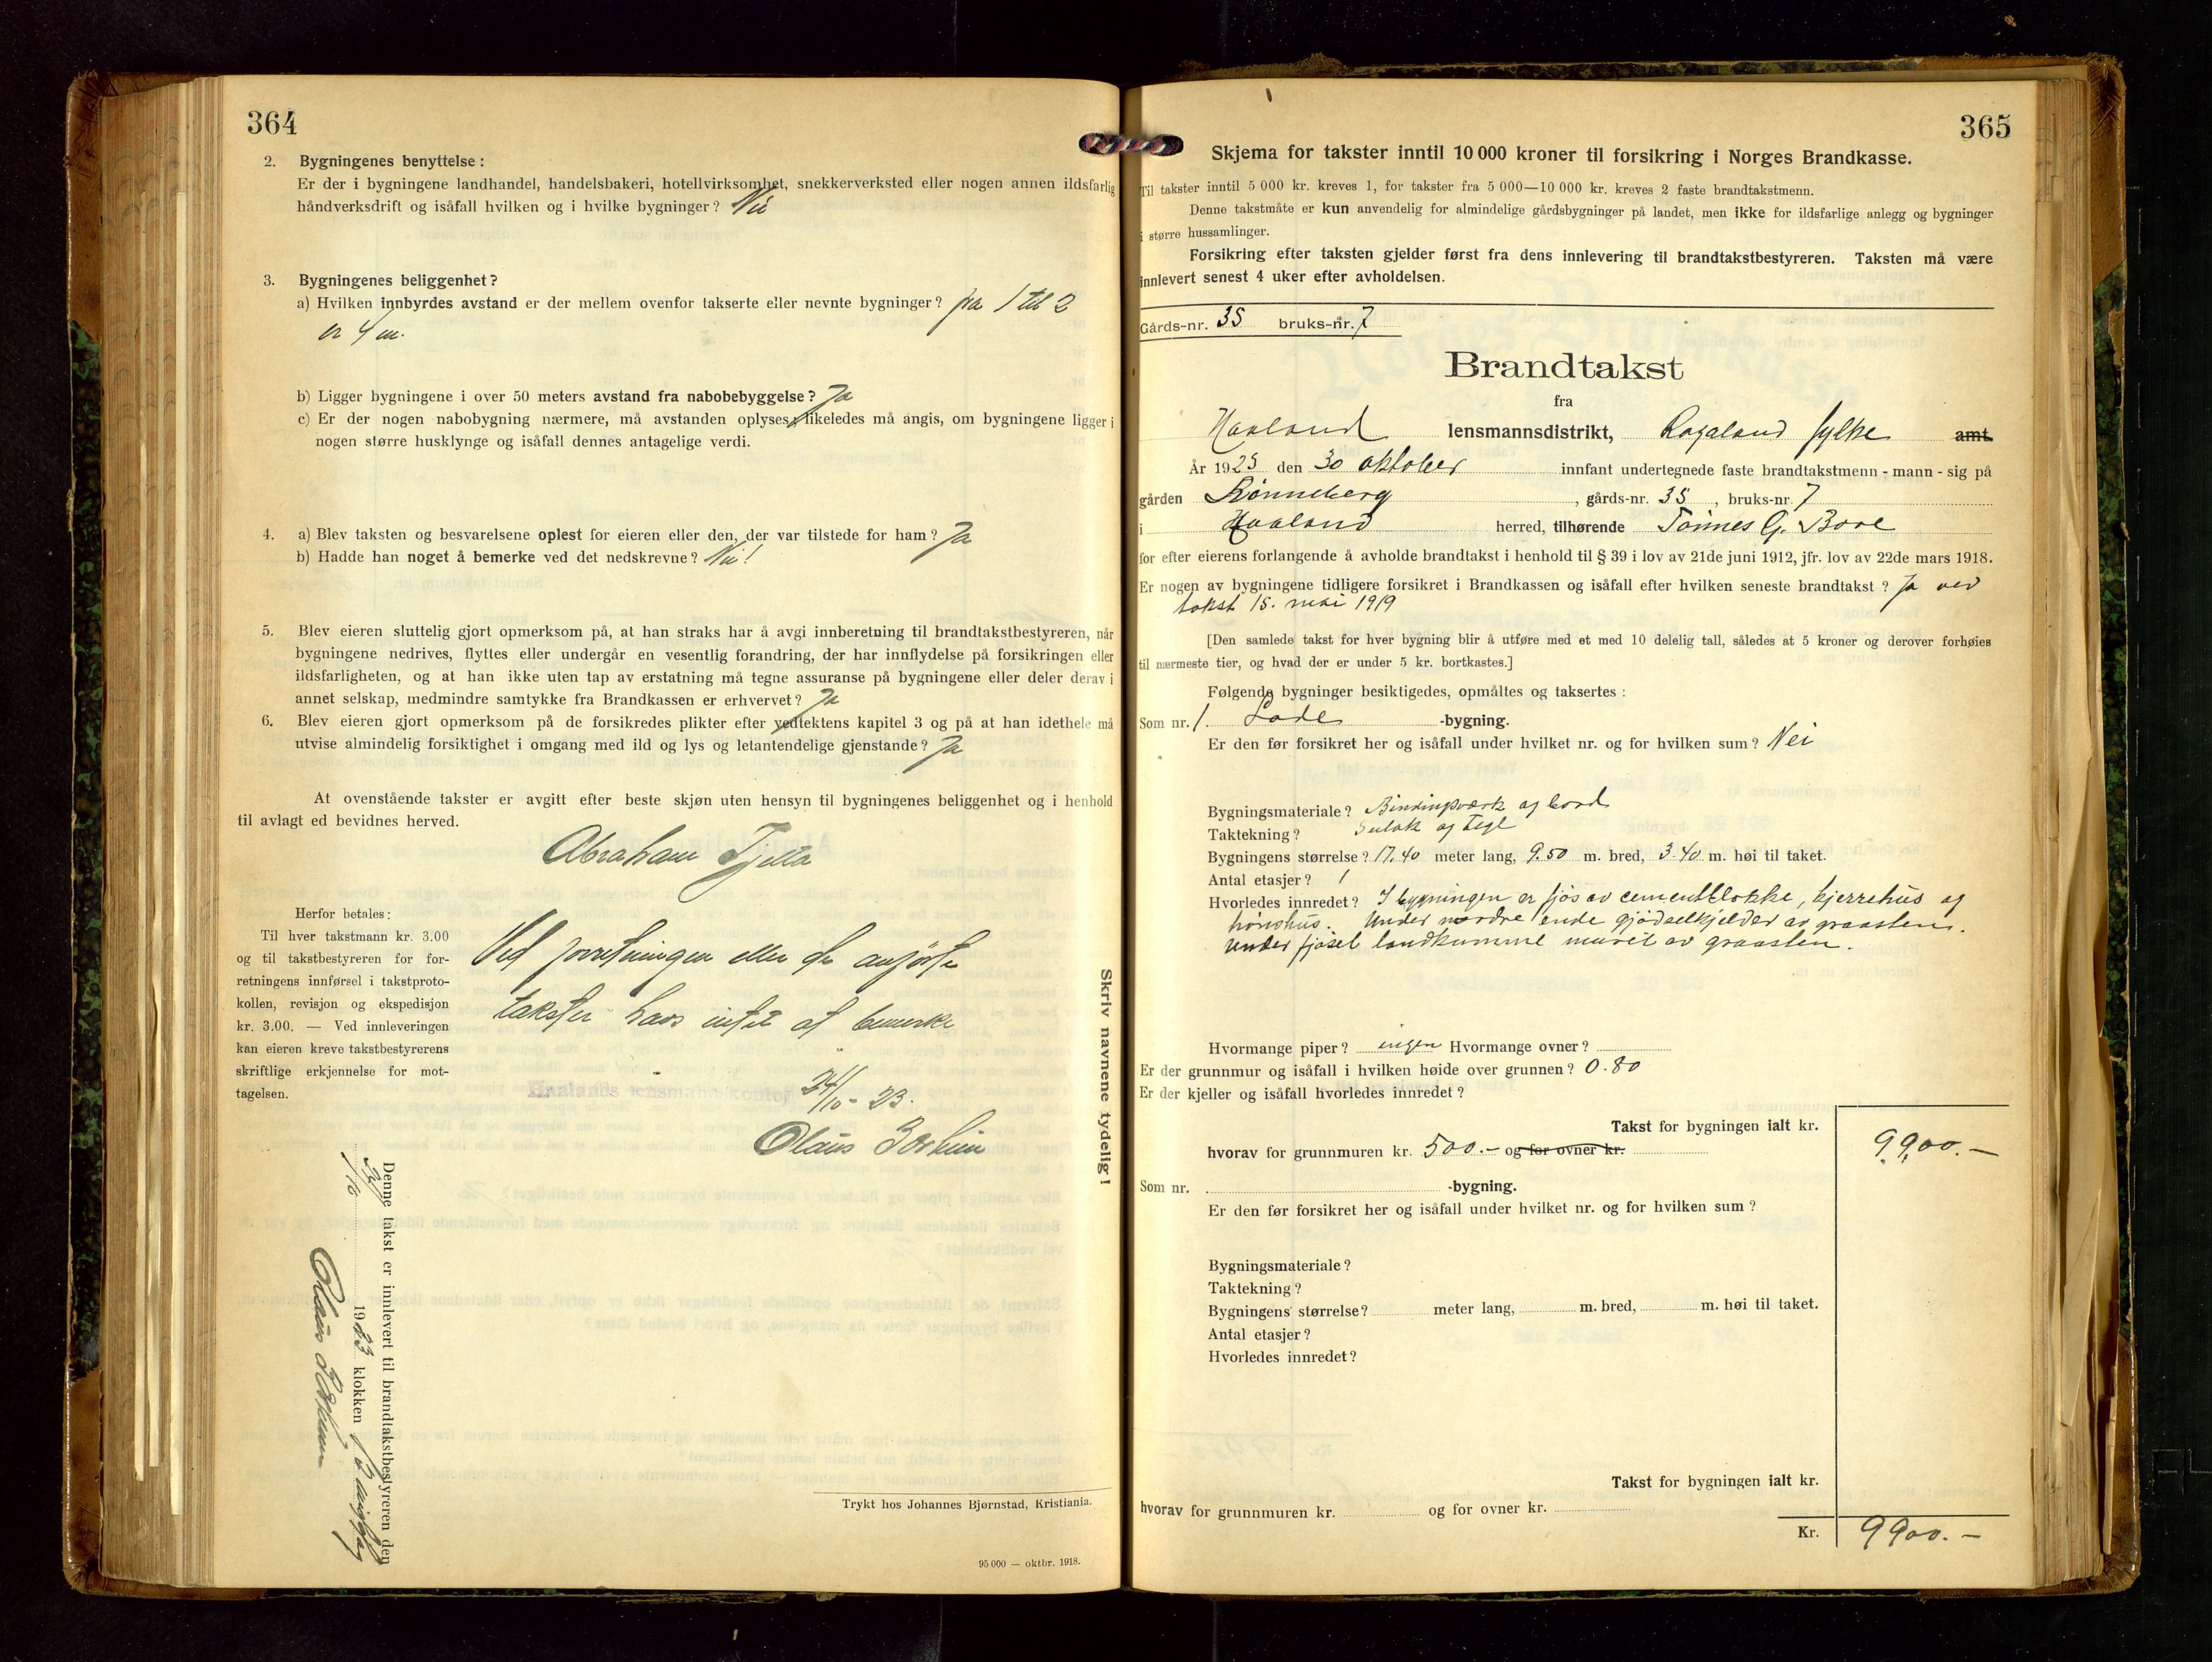 364
2. Bygningenes benyttelse:
Er der i bygningene landhandel, handelsbakeri, hotellvirksomhet, snekkerverksted eller nogen annen ildsfarlig
håndverksdrift og isåfall hvilken og i hvilke bygninger? Nei
3. Bygningenes beliggenhet?
a) Hvilken innbyrdes avstand er der mellem ovenfor takserte eller nevnte bygninger? fra 1 til 2
er 4 m.
b) Ligger bygningene i over 50 meters avstand fra nabobebyggelse? Ja
c) Er der nogen nabobygning nærmere, må avstanden oplyses; likeledes må angis, om bygningene ligger i
nogen større husklynge og isåfall dennes antagelige verdi.
4. a) Blev taksten og besvarelsene oplest for eieren eller den, der var tilstede for ham? Ja
b) Hadde han noget å bemerke ved det nedskrevne? Nei!
5. Blev eieren sluttelig gjort opmerksom på, at han straks har å avgi innberetning til brandtakstbestyreren, når
bygningene nedrives, flyttes eller undergår en vesentlig forandring, der har innflydelse på forsikringen eller
ildsfarligheten, og at han ikke uten tap av erstatning må tegne assuranse på bygningene eller deler derav i
annet selskap, medmindre samtykke fra Brandkassen er erhvervet? Ja
6. Blev eieren gjort opmerksom på de forsikredes plikter efter vedtektens kapitel 3 og på at han idethele må
utvise almindelig forsiktighet i omgang med ild og lys og letantendelige gjenstande? Ja
At ovenstående takster er avgitt efter beste skjøn uten hensyn til bygningenes beliggenhet og i henhold
til avlagt ed bevidnes herved.
Abraham Tjelta
Herfor betales:
Til hver takstmann kr. 3.00
og til takstbestyreren for for-
retningens innførsel i takstproto-
kollen, revisjon og ekspedisjon
kr. 3.00. — Ved innleveringen
kan eieren kreve takstbestyrerens
skriftlige erkjennelse for mot-
tagelsen.
Ved forretningen eller de anførte
takster haves intet at bemerke
Haalands lensmannskontor 24/10-23.
Olaus
Skriv navnene tydelig!
Denne takst er innlevert til brandtakstbestyreren den
1923 klokken 12 middag
Olaus
Trykt hos Johannes Bjørnstad, Kristiania.
95 000 — oktbr. 1918.
365
Skjema for takster inntil 10 000 kroner til forsikring i Norges Brandkasse.
Til takster inntil 5 000 kr. kreves 1, for takster fra 5 000—10 000 kr. kreves 2 faste brandtakstmenn.
Denne takstmåte er kun anvendelig for almindelige gårdsbygninger på landet, men ikke for ildsfarlige anlegg og bygninger
i større hussamlinger.
Forsikring efter taksten gjelder først fra dens innlevering til brandtakstbestyreren. Taksten må være
innlevert senest 4 uker efter avholdelsen.
Gårds-nr. 35 bruks-nr. 7
Brandtakst
fra
Haaland lensmannsdistrikt, Rogaland fylke amt.
År 1923 den 30 oktober innfant undertegnede faste brandtakstmenn - mann - sig på
gården Rønneberg, gårds-nr. 35, bruks-nr. 7
i Haaland herred, tilhørende Tønnes G. Bore
for efter eierens forlangende å avholde brandtakst i henhold til § 39 i lov av 21de juni 1912, jfr. lov av 22de mars 1918.
Er nogen av bygningene tidligere forsikret i Brandkassen og isåfall efter hvilken seneste brandtakst? Ja ved
takst 15. mai 1919
[Den samlede takst for hver bygning blir å utføre med et med 10 delelig tall, således at 5 kroner og derover forhøies
til nærmeste tier, og hvad der er under 5 kr. bortkastes.]
Følgende bygninger besiktigedes, opmåltes og taksertes:
Som nr. 1. Lade -bygning.
Er den før forsikret her og isåfall under hvilket nr. og for hvilken sum? Nei
Bygningsmateriale? Bindingsværk og bord
Taktekning? Sulak og tegl
Bygningens størrelse? 17.40 meter lang, 9.50 m. bred, 3.40 m. høi til taket.
Antal etasjer? 1
Hvorledes innredet? I bygningen er fjøs av cementblokke, kjerrehus og
hønshus. Under nordre ende gjødselkjelder av graasten.
Under fjøset landkumme muret av graasten.
Hvormange piper? ingen Hvormange ovner?
Er der grunnmur og isåfall i hvilken høide over grunnen? 0.80
Er der kjeller og isåfall hvorledes innredet?
Takst for bygningen ialt kr. 9900.—
hvorav for grunnmuren kr. 500.— og for ovner kr.
Som nr. -bygning.
Er den før forsikret her og isåfall under hvilket nr. og for hvilken sum?
Bygningsmateriale?
Taktekning?
Bygningens størrelse? meter lang, m. bred, m. høi til taket.
Antal etasjer?
Hvorledes innredet?
Takst for bygningen ialt kr.
hvorav for grunnmuren kr. og for ovner kr.
Kr. 9900.—